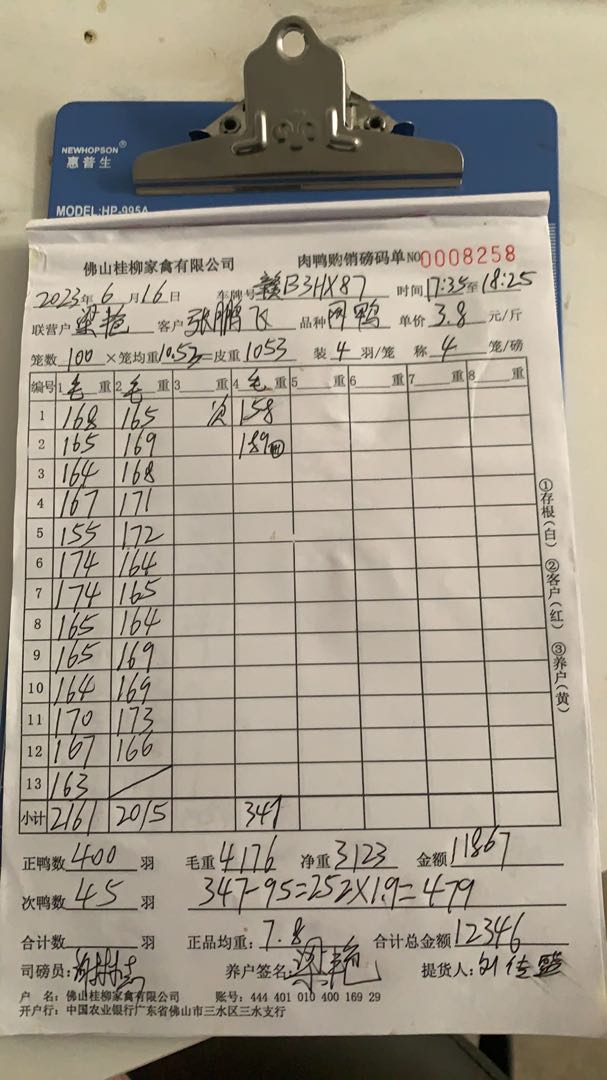 NEWHOPSON®
惠普生
MODEL:HP-995A
佛山桂柳家禽有限公司 肉鸭购销磅码单 NO 0008258
2023年 6月16日 车牌号 赣B3HX87 时间 17:35至18:25
联营户 梁艳 客户 张鹏飞 品种 肉鸭 单价 3.8 元/斤
笼数 100 ×笼均重 10.53 =皮重 1053 装 4 羽/笼 称 4 笼/磅
编号 1 毛 重 2 毛 重 3 重 4 毛 重 5 重 6 重 7 重 8 重
1 168 165 次 158
2 165 169 189
3 164 168
4 167 171
5 155 172
6 174 164
7 174 165
8 165 164
9 165 169
10 164 169
11 170 173
12 167 166
13 163
小计 2161 2015 347
正鸭数 400 羽 毛重 4176 净重 3123 金额 11867
次鸭数 45 羽 347-95=252×1.9=479
合计数 羽 正品均重: 7.8 合计总金额 12346
司磅员: 养户签名: 梁艳 提货人:
户 名: 佛山桂柳家禽有限公司 账号: 444 401 010 400 169 29
开户行: 中国农业银行广东省佛山市三水区三水支行
①存根(白) ②客户(红) ③养户(黄)